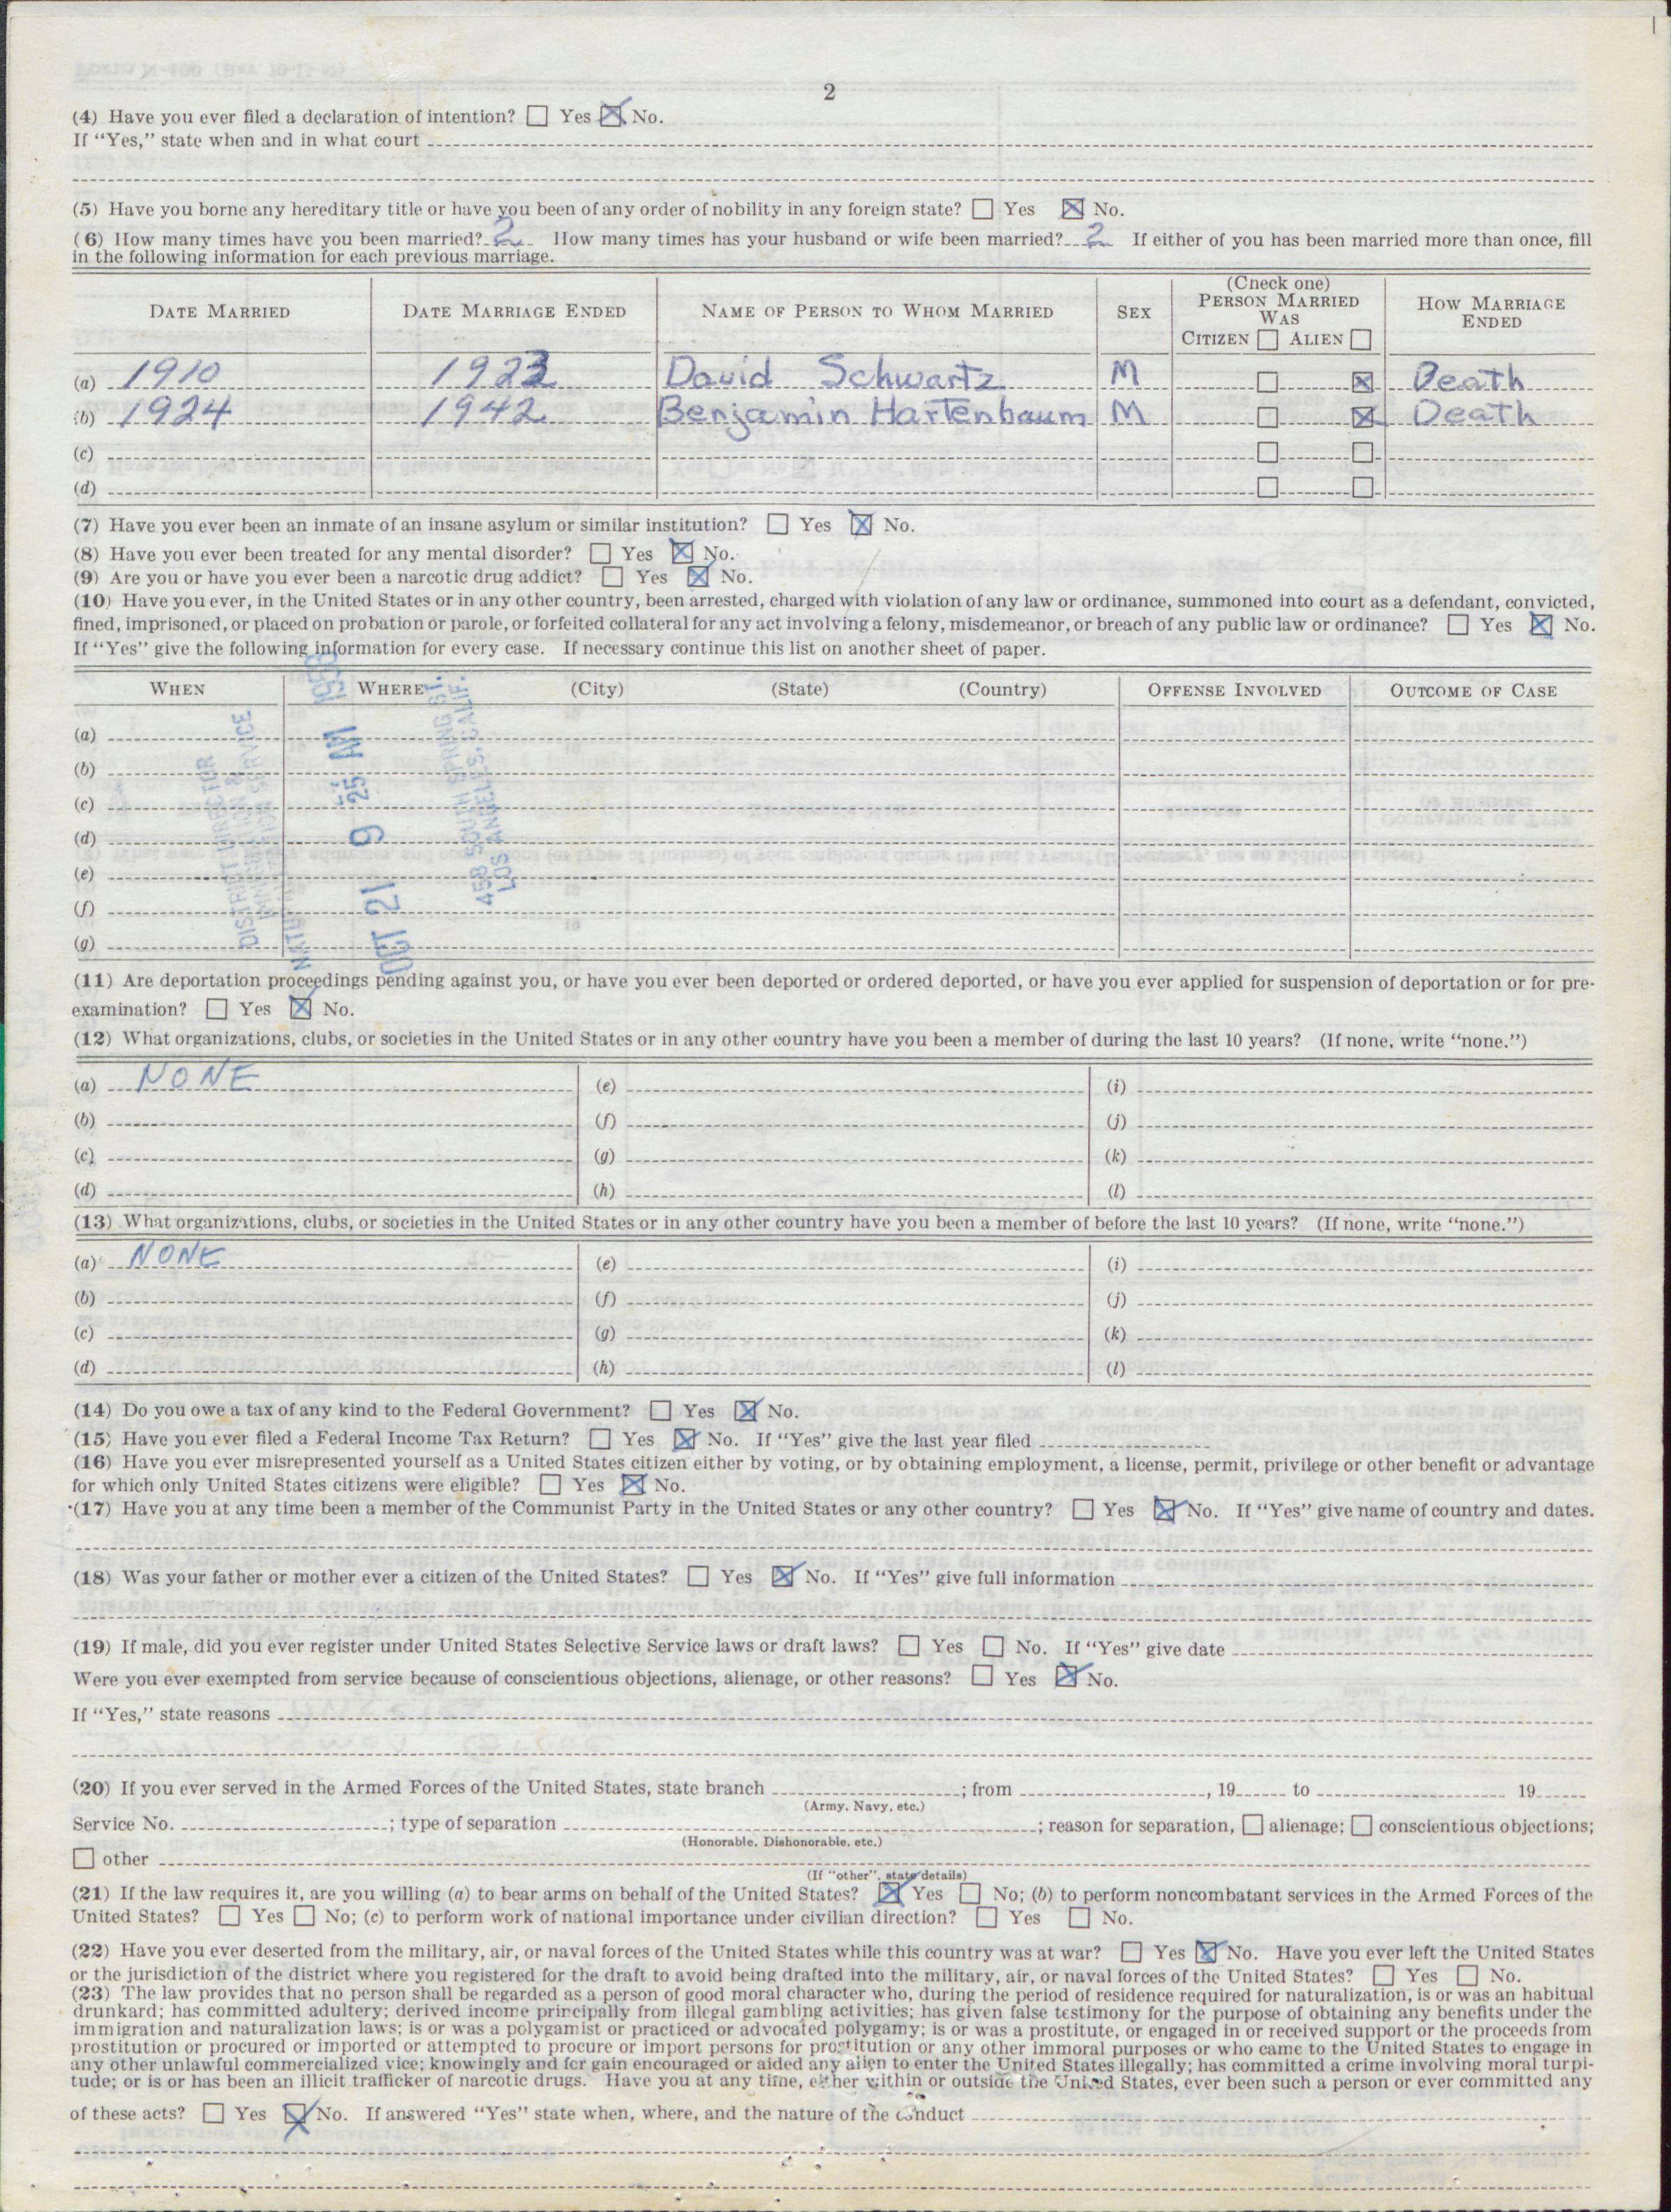 2
(4) Have you ever filed a declaration of intention? ☐ Yes ☒ No.
If "Yes," state when and in what court
(5) Have you borne any hereditary title or have you been of any order of nobility in any foreign state? ☐ Yes ☒ No.
(6) How many times have you been married? 2 How many times has your husband or wife been married? 2 If either of you has been married more than once, fill
in the following information for each previous marriage.
DATE MARRIED DATE MARRIAGE ENDED NAME OF PERSON TO WHOM MARRIED SEX (Check one) PERSON MARRIED WAS CITIZEN ☐ ALIEN ☐ HOW MARRIAGE ENDED
(a) 1910 1923 David Schwartz M ☐ ☒ Death
(b) 1924 1942 Benjamin Hartenbaum M ☐ ☒ Death
(c) ☐ ☐
(d) ☐ ☐
(7) Have you ever been an inmate of an insane asylum or similar institution? ☐ Yes ☒ No.
(8) Have you ever been treated for any mental disorder? ☐ Yes ☒ No.
(9) Are you or have you ever been a narcotic drug addict? ☐ Yes ☒ No.
(10) Have you ever, in the United States or in any other country, been arrested, charged with violation of any law or ordinance, summoned into court as a defendant, convicted,
fined, imprisoned, or placed on probation or parole, or forfeited collateral for any act involving a felony, misdemeanor, or breach of any public law or ordinance? ☐ Yes ☒ No.
If "Yes" give the following information for every case. If necessary continue this list on another sheet of paper.
WHEN WHERE (City) (State) (Country) OFFENSE INVOLVED OUTCOME OF CASE
(a)
(b)
(c)
(d)
(e)
(f)
(g)
DISTRICT DIRECTOR
OCT 21 9 25 AM
458 SOUTH SPRING ST.
LOS ANGELES, CALIF.
(11) Are deportation proceedings pending against you, or have you ever been deported or ordered deported, or have you ever applied for suspension of deportation or for pre-
examination? ☐ Yes ☒ No.
(12) What organizations, clubs, or societies in the United States or in any other country have you been a member of during the last 10 years? (If none, write "none.")
(a) NONE (e) (i)
(b) (f) (j)
(c) (g) (k)
(d) (h) (l)
(13) What organizations, clubs, or societies in the United States or in any other country have you been a member of before the last 10 years? (If none, write "none.")
(a) NONE (e) (i)
(b) (f) (j)
(c) (g) (k)
(d) (h) (l)
(14) Do you owe a tax of any kind to the Federal Government? ☐ Yes ☒ No.
(15) Have you ever filed a Federal Income Tax Return? ☐ Yes ☒ No. If "Yes" give the last year filed
(16) Have you ever misrepresented yourself as a United States citizen either by voting, or by obtaining employment, a license, permit, privilege or other benefit or advantage
for which only United States citizens were eligible? ☐ Yes ☒ No.
(17) Have you at any time been a member of the Communist Party in the United States or any other country? ☐ Yes ☒ No. If "Yes" give name of country and dates.
(18) Was your father or mother ever a citizen of the United States? ☐ Yes ☒ No. If "Yes" give full information
(19) If male, did you ever register under United States Selective Service laws or draft laws? ☐ Yes ☐ No. If "Yes" give date
Were you ever exempted from service because of conscientious objections, alienage, or other reasons? ☐ Yes ☒ No.
If "Yes," state reasons
(20) If you ever served in the Armed Forces of the United States, state branch ; from , 19 to 19
(Army, Navy, etc.)
Service No. ; type of separation ; reason for separation, ☐ alienage; ☐ conscientious objections;
(Honorable, Dishonorable, etc.)
☐ other
(If "other", state details)
(21) If the law requires it, are you willing (a) to bear arms on behalf of the United States? ☒ Yes ☐ No; (b) to perform noncombatant services in the Armed Forces of the
United States? ☐ Yes ☐ No; (c) to perform work of national importance under civilian direction? ☐ Yes ☐ No.
(22) Have you ever deserted from the military, air, or naval forces of the United States while this country was at war? ☐ Yes ☒ No. Have you ever left the United States
or the jurisdiction of the district where you registered for the draft to avoid being drafted into the military, air, or naval forces of the United States? ☐ Yes ☐ No.
(23) The law provides that no person shall be regarded as a person of good moral character who, during the period of residence required for naturalization, is or was an habitual
drunkard; has committed adultery; derived income principally from illegal gambling activities; has given false testimony for the purpose of obtaining any benefits under the
immigration and naturalization laws; is or was a polygamist or practiced or advocated polygamy; is or was a prostitute, or engaged in or received support or the proceeds from
prostitution or procured or imported or attempted to procure or import persons for prostitution or any other immoral purposes or who came to the United States to engage in
any other unlawful commercialized vice; knowingly and for gain encouraged or aided any alien to enter the United States illegally; has committed a crime involving moral turpi-
tude; or is or has been an illicit trafficker of narcotic drugs. Have you at any time, either within or outside the United States, ever been such a person or ever committed any
of these acts? ☐ Yes ☒ No. If answered "Yes" state when, where, and the nature of the conduct